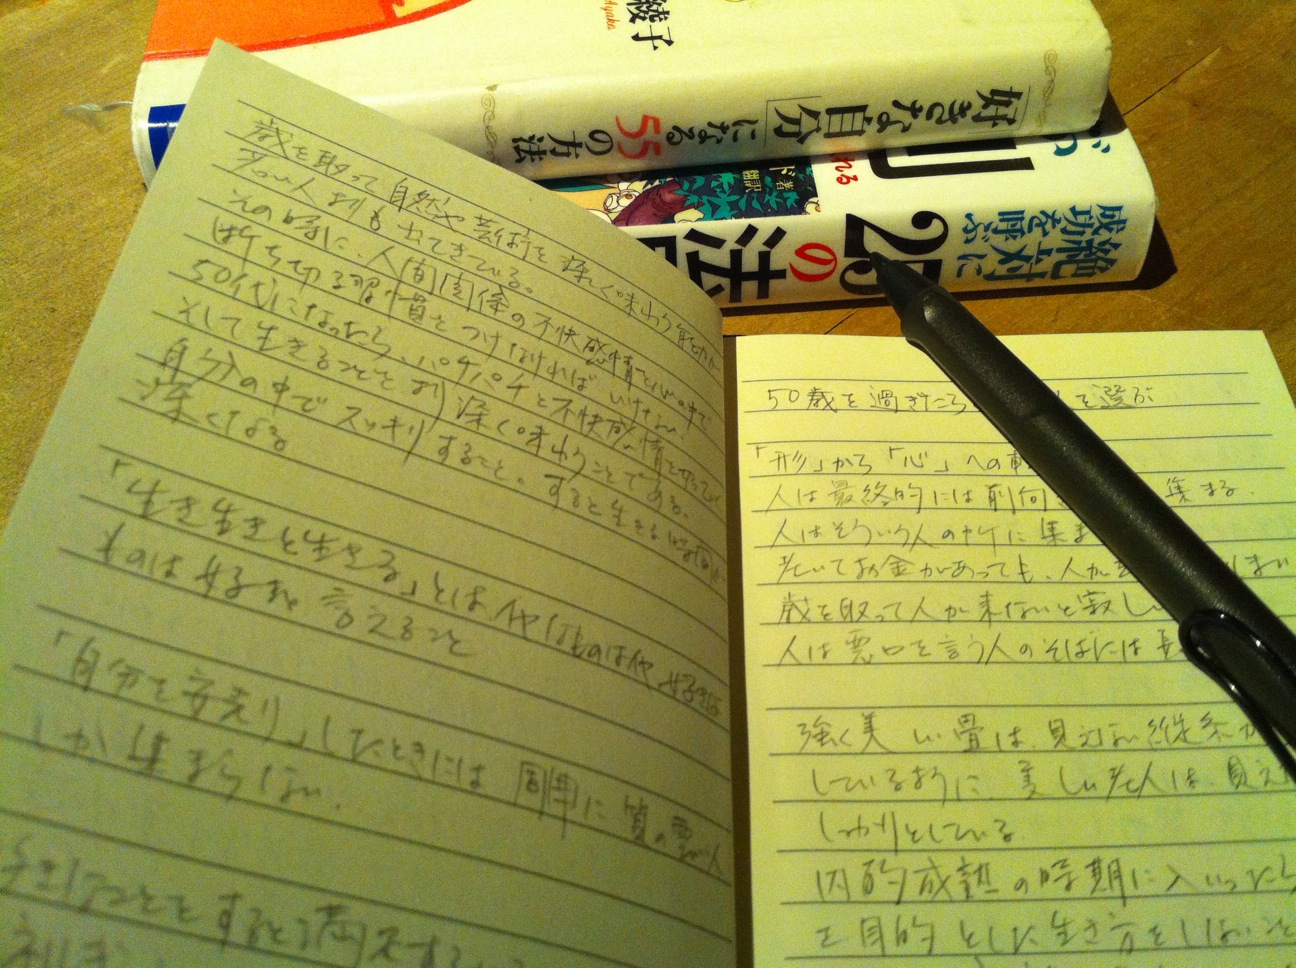 綾子
Ayaka
「好きな自分」になる55の方法
絶対に成功を呼ぶ
25の法
著
翻訳
歳を取って自然や芸術を深く味わう能力が
若い人よりも出てきている。
その時に、人間関係の不快感情を心の中で
断ち切る習慣をつけなければいけない。
50代になったら、パチパチと不快感情を切って
そして生きることをより深く味わうことである。
自分の中でスッキリすること。すると生きる
深くなる
「生き生きと生きる」とは、イヤなものはイヤ、好きな
ものは好きと言えること
「自分を安売り」したときには周囲に質の悪い人
しか集まらない。
50歳を過ぎたころ を選ぶ
「形」から「心」への
人は最終的には前向 集まる。
人はそういう人の所に集ま
老いてお金があっても、人が
歳を取って人が来ないと寂し
人は悪口を言う人のそばには
強く美しい畳は、見えない縦糸が
しているように、美しい老人は、見え
しっかりとしている
内的成熟の時期に入ったら
を目的とした生き方をしないこと